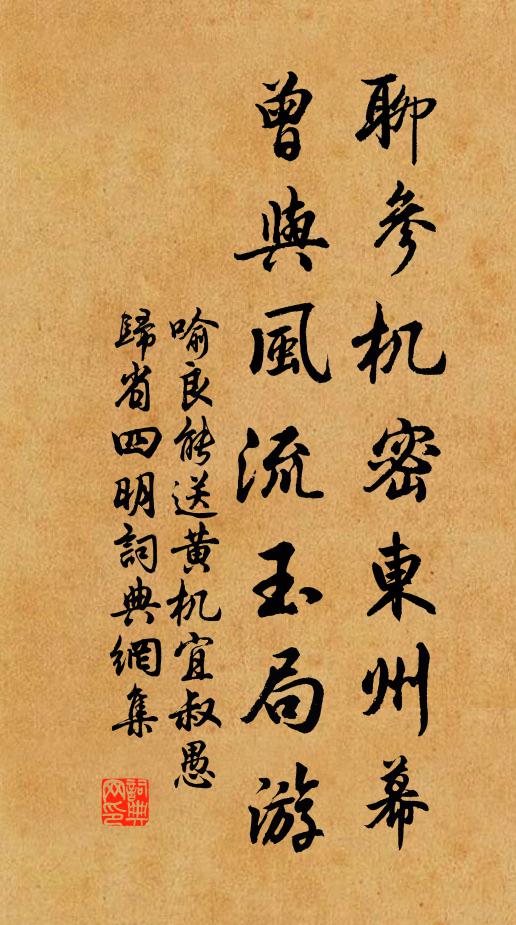 聊參机密東州幕
曾與風流玉局游
喻良能送黄机宜叔愚
歸省四明詞典網集
詞典
网印